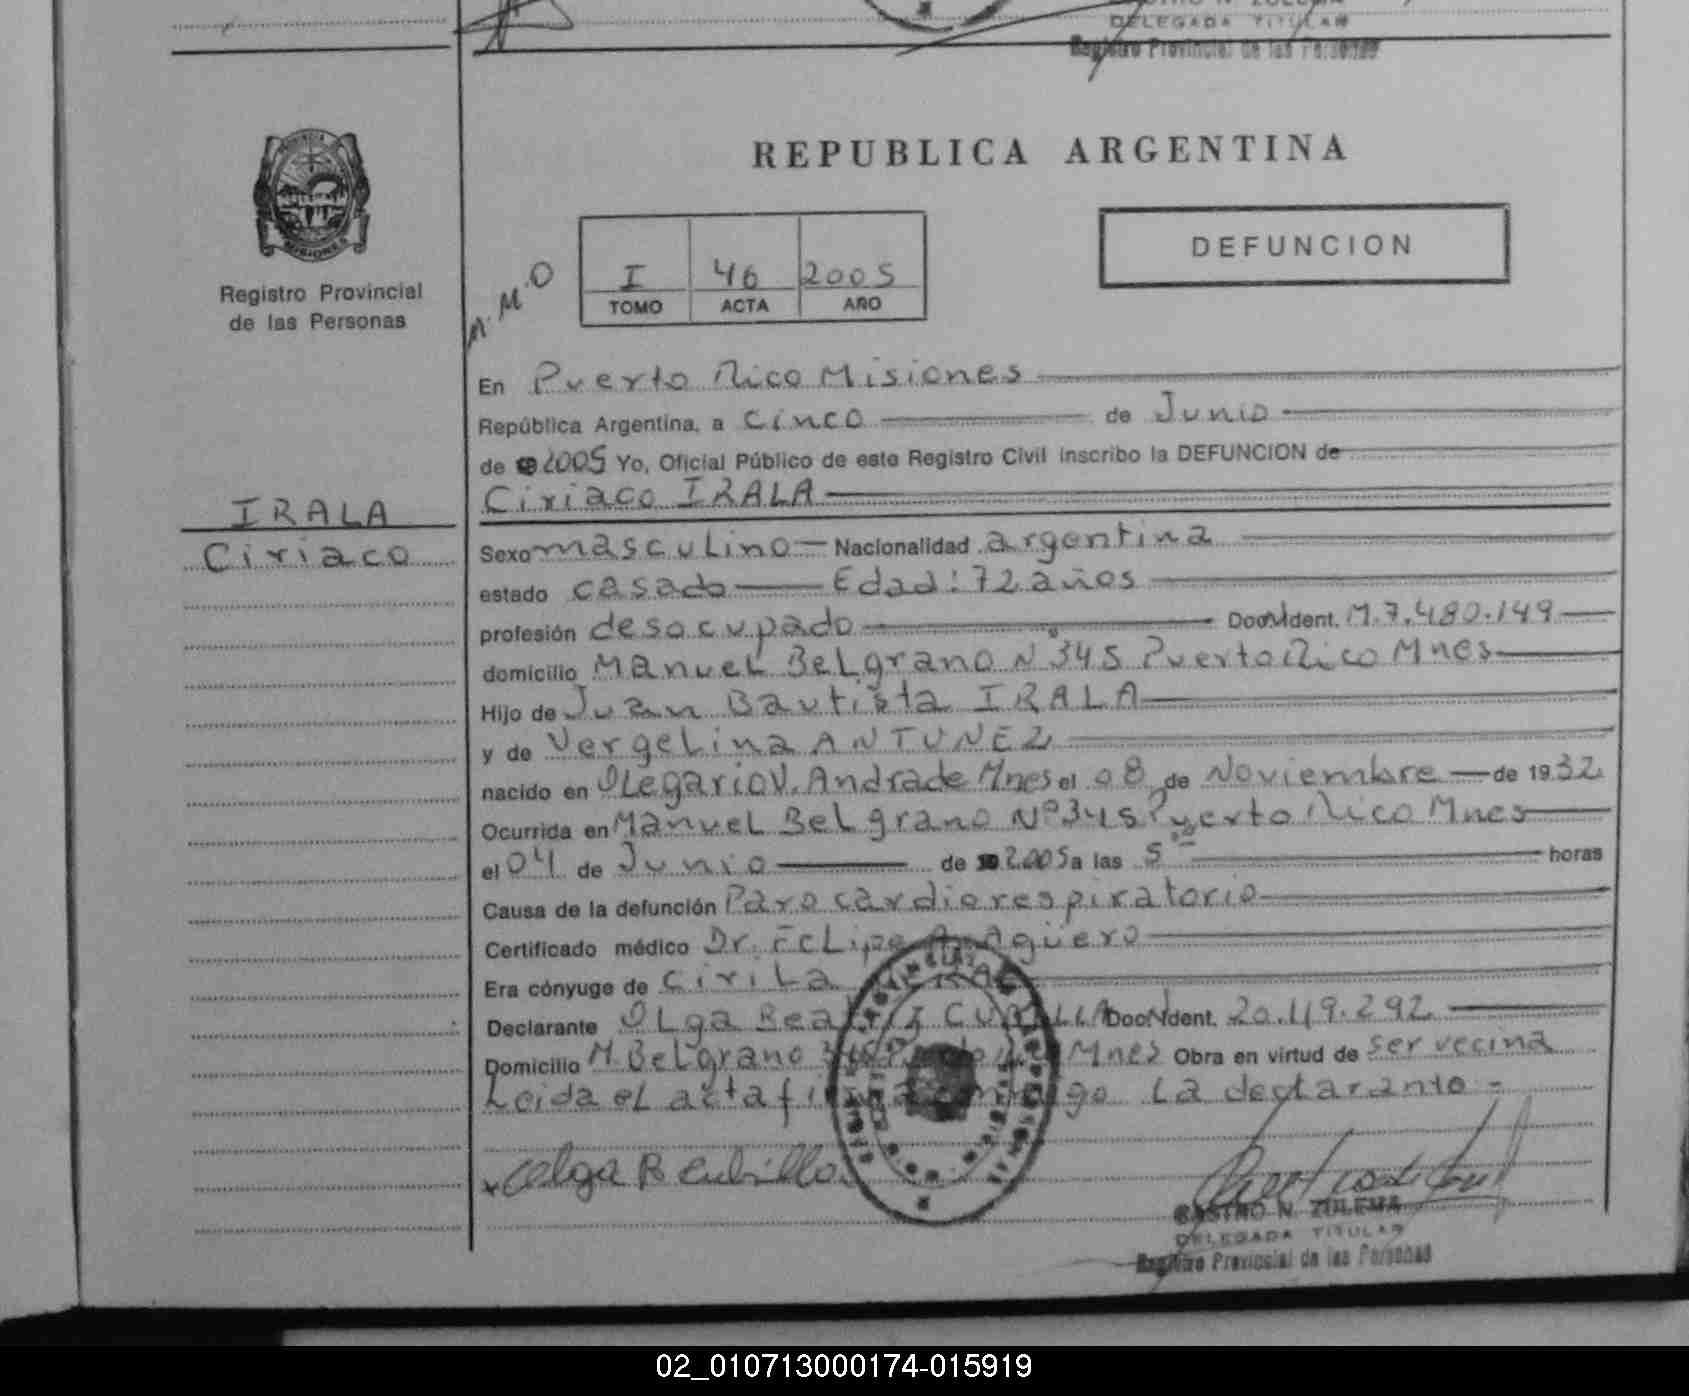 DELEGADA TITULAR
Registro Provincial de las Personas
PROVINCIA
MISIONES
Registro Provincial
de las Personas
REPUBLICA ARGENTINA
DEFUNCION
I 46 2005
TOMO ACTA AÑO
En Puerto Rico Misiones
República Argentina, a cinco de Junio
de 2005 Yo, Oficial Público de este Registro Civil inscribo la DEFUNCION de
Ciriaco IRALA
IRALA
Ciriaco
Sexo masculino Nacionalidad argentina
estado casado Edad: 72 años
profesión desocupado Doc. Ident. M.7.480.149
domicilio Manuel Belgrano N° 345 Puerto Rico Mnes
Hijo de Juan Bautista IRALA
y de Vergelina ANTUNEZ
nacido en Olegario V. Andrade Mnes el 08 de Noviembre de 1932
Ocurrida en Manuel Belgrano N° 345 Puerto Rico Mnes
el 04 de Junio de 2005 a las 5 horas
Causa de la defunción Paro cardiorespiratorio
Certificado médico Dr. Felipe A. Agüero
Era cónyuge de Cirila
Declarante Olga CUBILLA Doc. Ident. 20.119.292
Domicilio M. Belgrano 345 Mnes Obra en virtud de ser vecina
Leida el acta firma conmigo la declarante -
Olga B Cubilla
CASTRO N. ZULEMA
DELEGADA TITULAR
Registro Provincial de las Personas
02_010713000174-015919